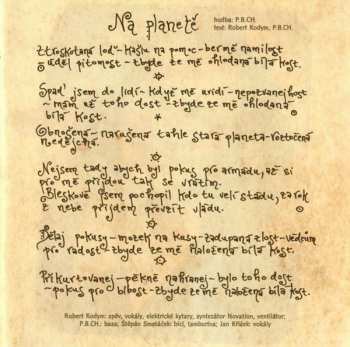 Na planetě
hudba: P.B.CH.
text: Robert Kodym, P.B.CH.
Ztroskotaná loď - kašlu na pomoc - berme na milost
Uděl pitomost - zbyde ze mě ohlodaná bílá kost.
Spad' jsem do lidí - když mě uvidí - nepozvanej host
- mám už toho dost - zbyde ze mě ohlodaná
bílá kost.
Obnošená - narušená tahle stará planeta - roztočená
Nejsem tady abych byl pokus pro armádu, až si
pro mě přijdou tak se vrátím.
Bleskově jsem pochopil kdo tu velí stádu, za rok
z nebe přijdem převzít vládu.
Dělaj pokusy - mozek na kusy - zadupaná zlost - vědcům
pro radost - zbyde ze mě naložená bílá kost.
Přikurtovanej - pěkně nahranej - bylo toho dost
- pokus pro blbost - zbyde ze mě nabžená bílá kost.
Robert Kodym: zpěv, vokály, elektrické kytary, syntezátor Novation, ventilátor;
P.B.CH.: basa; Štěpán Smetáček: bicí, tamburína; Jan Křížek: vokály